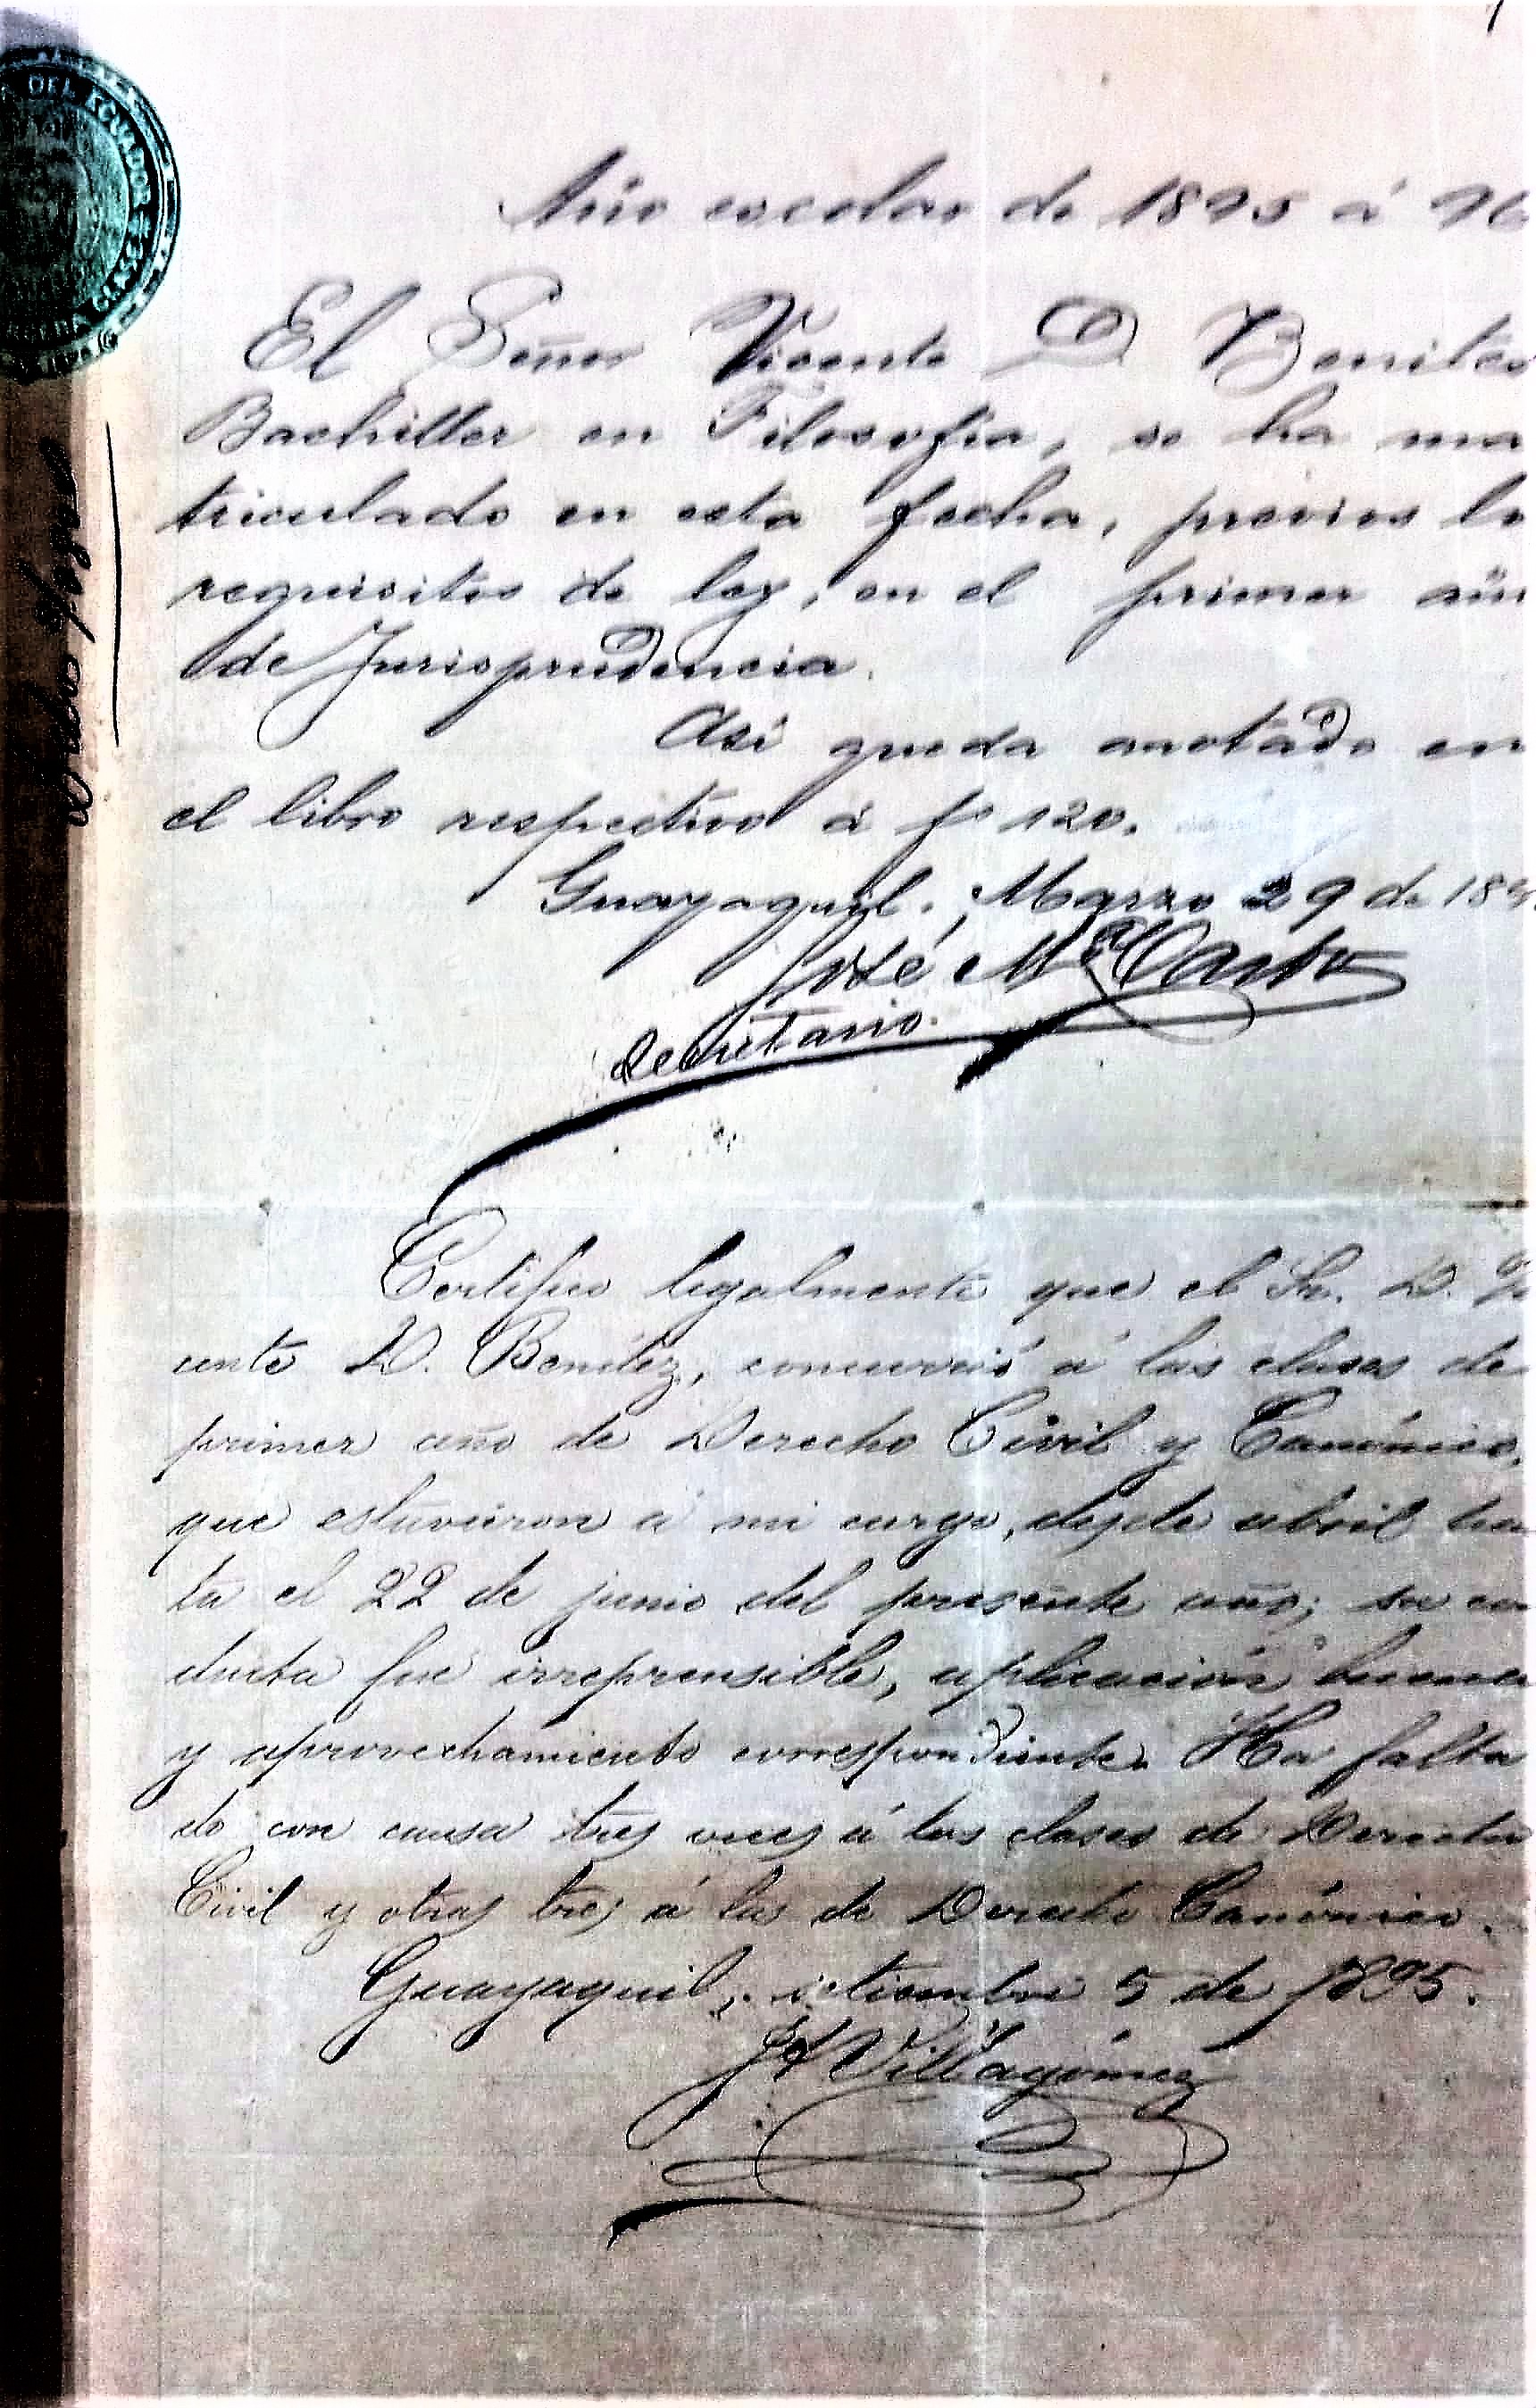 DEL ECUADOR
Año escolar de 1895 á 96
El Señor Vicente D Benites
Bachiller en Filosofía, se ha ma
triculado en esta fecha, previos lo
requisitos de ley, en el primer añ
de Jurisprudencia.
Asi queda anotado en
el libro respectivo á fs 120.
Guayaquil. Marzo 29 de 189
José Ma Carbo
Secretario.
Certifico legalmente que el Sr. D. Vi
cente D. Benítez, concurrió á las clases de
primer año de Derecho Civil y Canónico,
que estuvieron á mi cargo, desde abril has
ta el 22 de junio del presente año; su con
ducta fue irreprensible, aplicación buena
y aprovechamiento correspondiente. Ha falta
do con causa tres veces á las clases de Derecho
Civil y otras tres á las de Derecho Canónico.
Guayaquil, setiembre 5 de 1895.
J A Villagómez